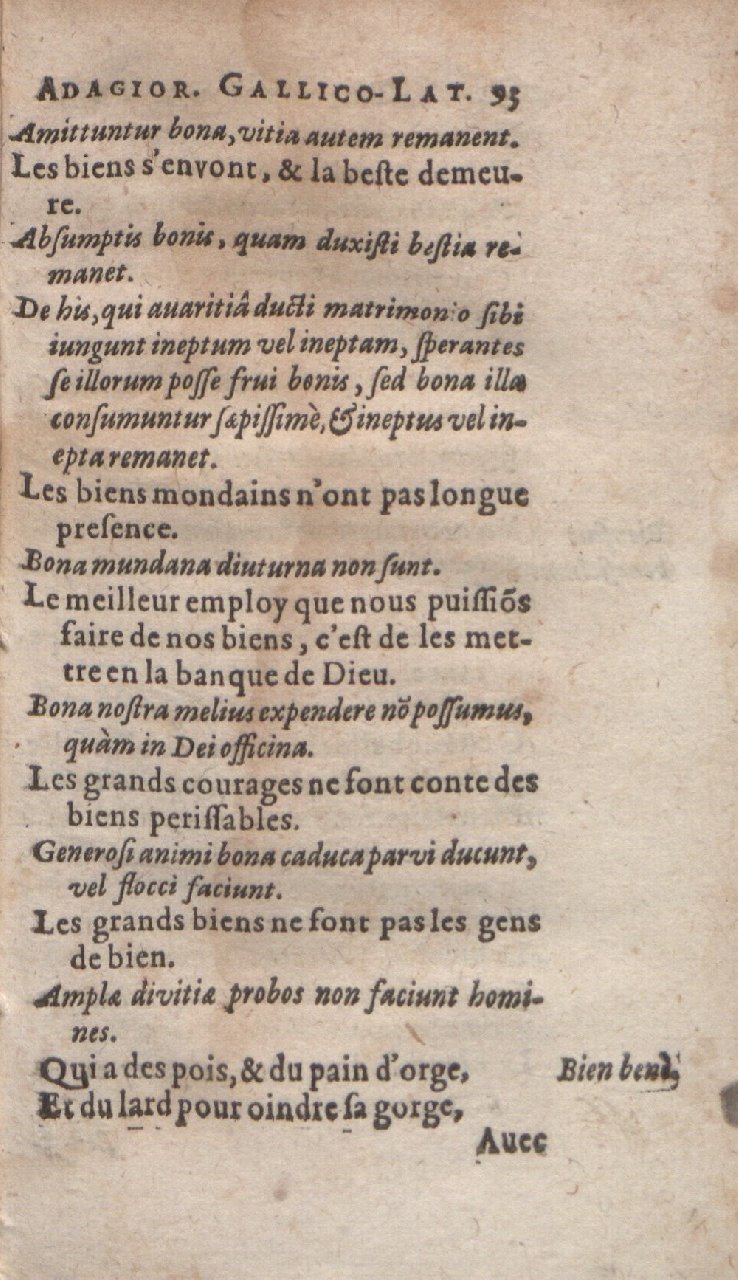 ADAGIOR. GALLICO-LAT. 93
Amittuntur bona, vitia autem remanent.
Les biens s'envont, & la beſte demeu-
re.
Abſumptis bonis, quam duxiſti beſtia re-
manet.
De his, qui auaritiâ ducti matrimonio ſibi
iungunt ineptum vel ineptam, ſperantes
ſe illorum poſſe frui bonis, ſed bona illa
conſumuntur ſæpiſſimè, & ineptus vel in-
epta remanet.
Les biens mondains n'ont pas longue
preſence.
Bona mundana diuturna non ſunt.
Le meilleur employ que nous puiſſiõs
faire de nos biens, c'eſt de les met-
tre en la banque de Dieu.
Bona noſtra melius expendere nõ poſſumus,
quàm in Dei officina.
Les grands courages ne font conte des
biens periſſables.
Generoſi animi bona caduca parvi ducunt,
vel flocci faciunt.
Les grands biens ne font pas les gens
de bien.
Amplæ divitiæ probos non faciunt homi-
nes.
Qui a des pois, & du pain d'orge, Bien
Et du lard pour oindre ſa gorge,
Auec